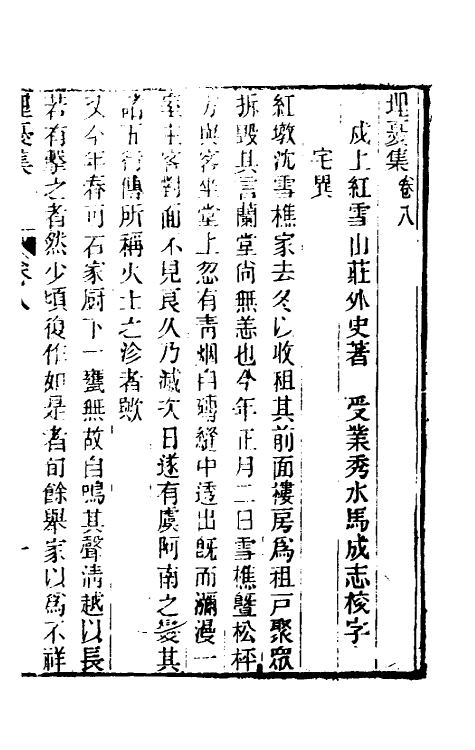 埋憂集卷八
戍上紅雪山莊外史著　受業秀水馬成志校字
宅異
紅墩沈雪樵家去冬以收租其前面樓房為租戶聚眾
拆毀其言蘭堂尚無恙也今年正月二日雪樵暨松枰
方與客坐堂上忽有青烟自磚縫中透出既而瀰漫一
室主客對面不見良久乃滅次日遂有虞阿南之變其
諸五行傳所稱火土之沴者歟
又今年春可石家厨下一甕無故自鳴其聲清越以長
若有擊之者然少頃復作如是者旬餘舉家以為不祥
埋憂集　卷八　一